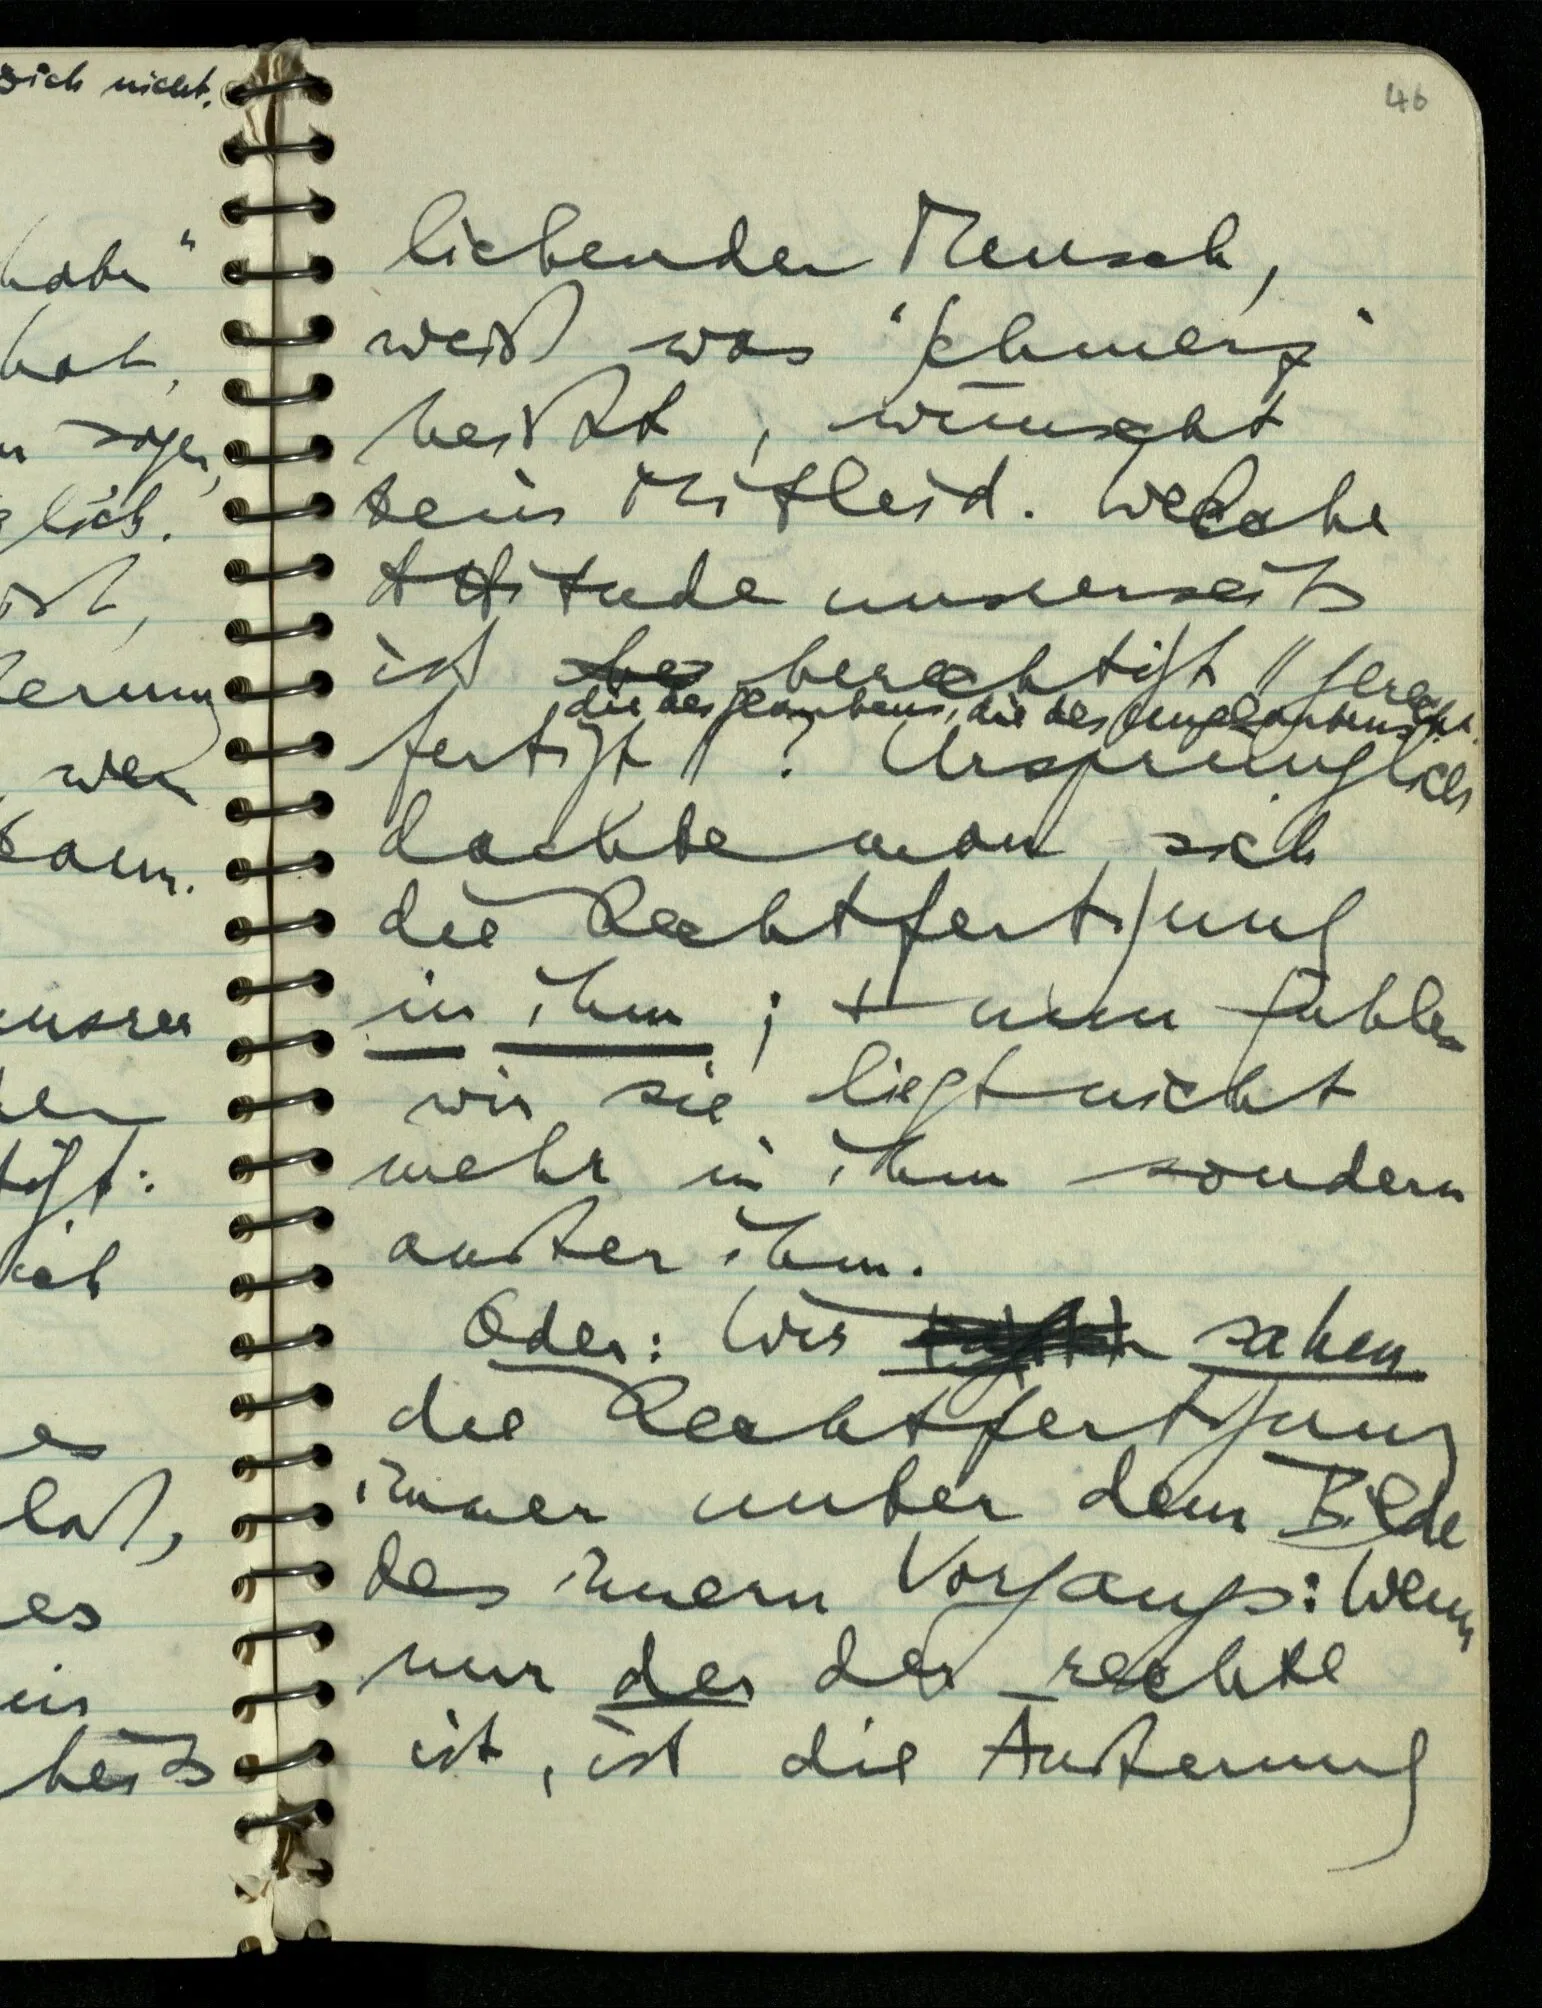 sich nicht.
haben"
hat,
sagen,
ist,
wer
kann.
unsrer
es
es
46
liebender Mensch,
weiß was "Schmerz"
heißt, wünscht
kein Mitleid. Welche
Attitude unserseits
ist bes berechtigt // gerecht-
die des Glaubens, die des Unglaubens?
fertigt //? Ursprünglich
dachte man sich
die Rechtfertigung
in ihm; + nun fühlen
wir sie liegt nicht
mehr in ihm sondern
außer ihm.
Oder: Wir sahen
die Rechtfertigung
immer unter dem Bilde
des innern Vorgangs: Wenn
nur der der rechte
ist, ist die Äußerung